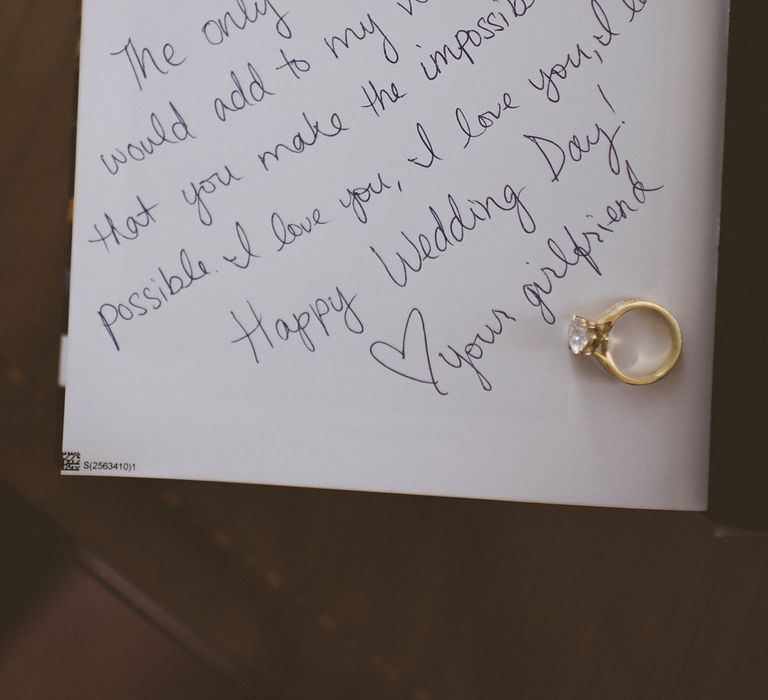 The only
would add to my
that you make the
possible. I love you, I love you, I
Happy Wedding Day!
♡ your girlfriend
S(2563410)1